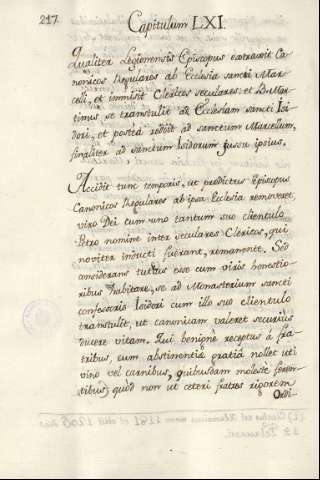 217.
Capitulum LXI.
Qualiter Legionensis Episcopus extraxit Ca-
nonicos Regulares ab Ecclesia sancti Mar-
celli, et immisit Clericos seculares et B. Mar-
tinus se transtulit ad Ecclesiam sancti Isi-
dori, et postea rediit ad sanctum Marcellum,
finaliter ad sanctum Isidorum jussu ipsius.
Accidit tunc temporis, ut predictus Episcopus
Canonicos Regulares ab ipsa Ecclesia removeret,
viro Dei cum uno tantum suo clientulo
Petro nomine inter seculares Clericos, qui
noviter inducti fuerant, remanente. Sed
considerans tutius esse cum viris honestio-
ribus habitare, se ad Monasterium sancti
confessoris Isidori cum illo suo clientulo
transtulit, ut canonicam valeret securius
ducere vitam. Qui benigne receptus á fra-
tribus, cum abstinentiæ gratia nollet uti
vino vel carnibus, quibusdam moleste feren-
tibus, quod non ut ceteri fratres rigorem
Ordi-